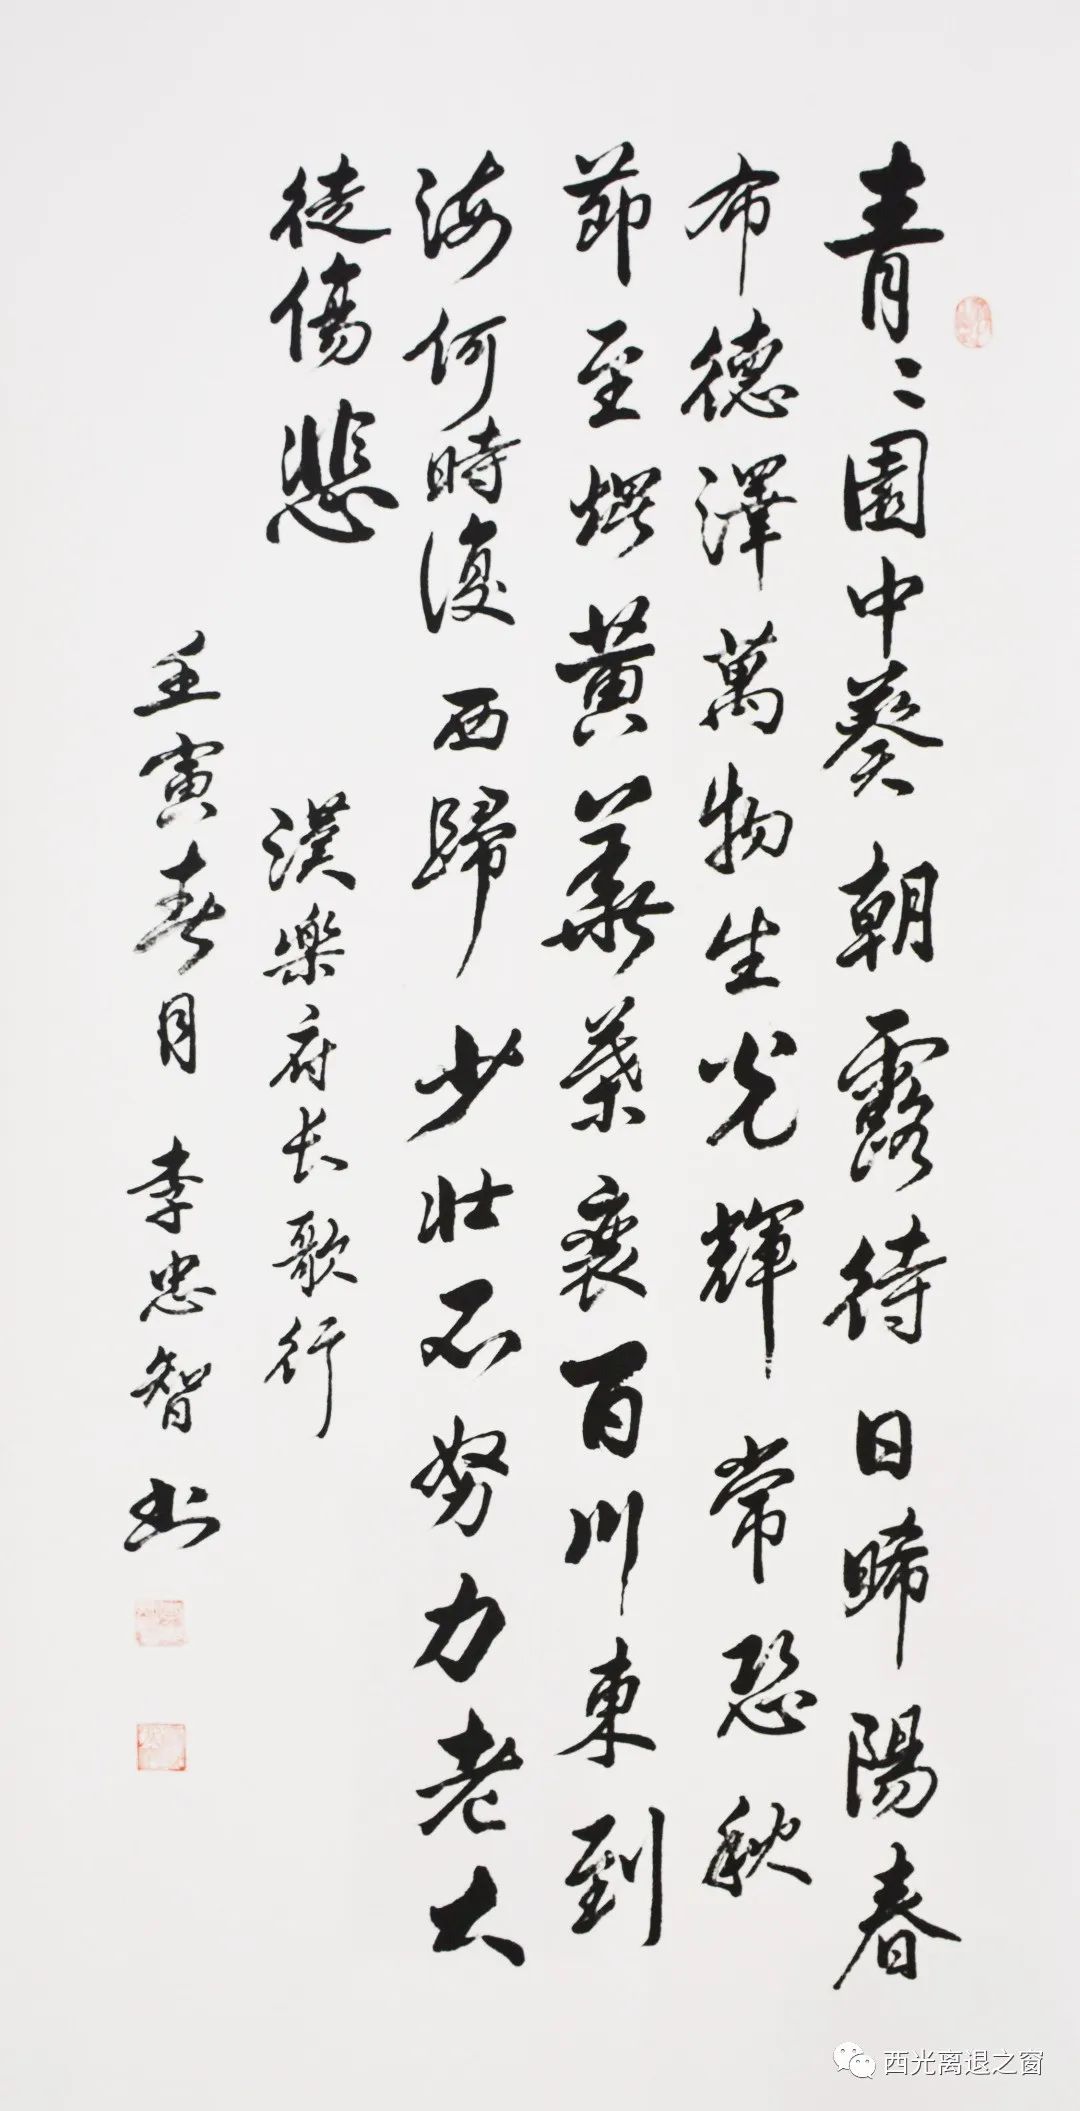 青〻園中葵朝露待日晞陽春
布德澤萬物生光輝常恐秋
節至焜黃華葉衰百川東到
海何時復西歸少壯不努力老大
徒傷悲
漢樂府長歌行
壬寅春月 李忠智書
西光离退之窗